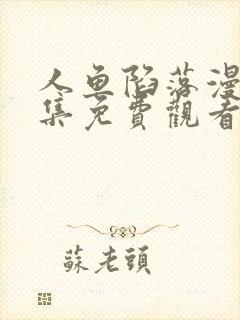 人鱼陷落漫
集免費觀看
蘇老頭